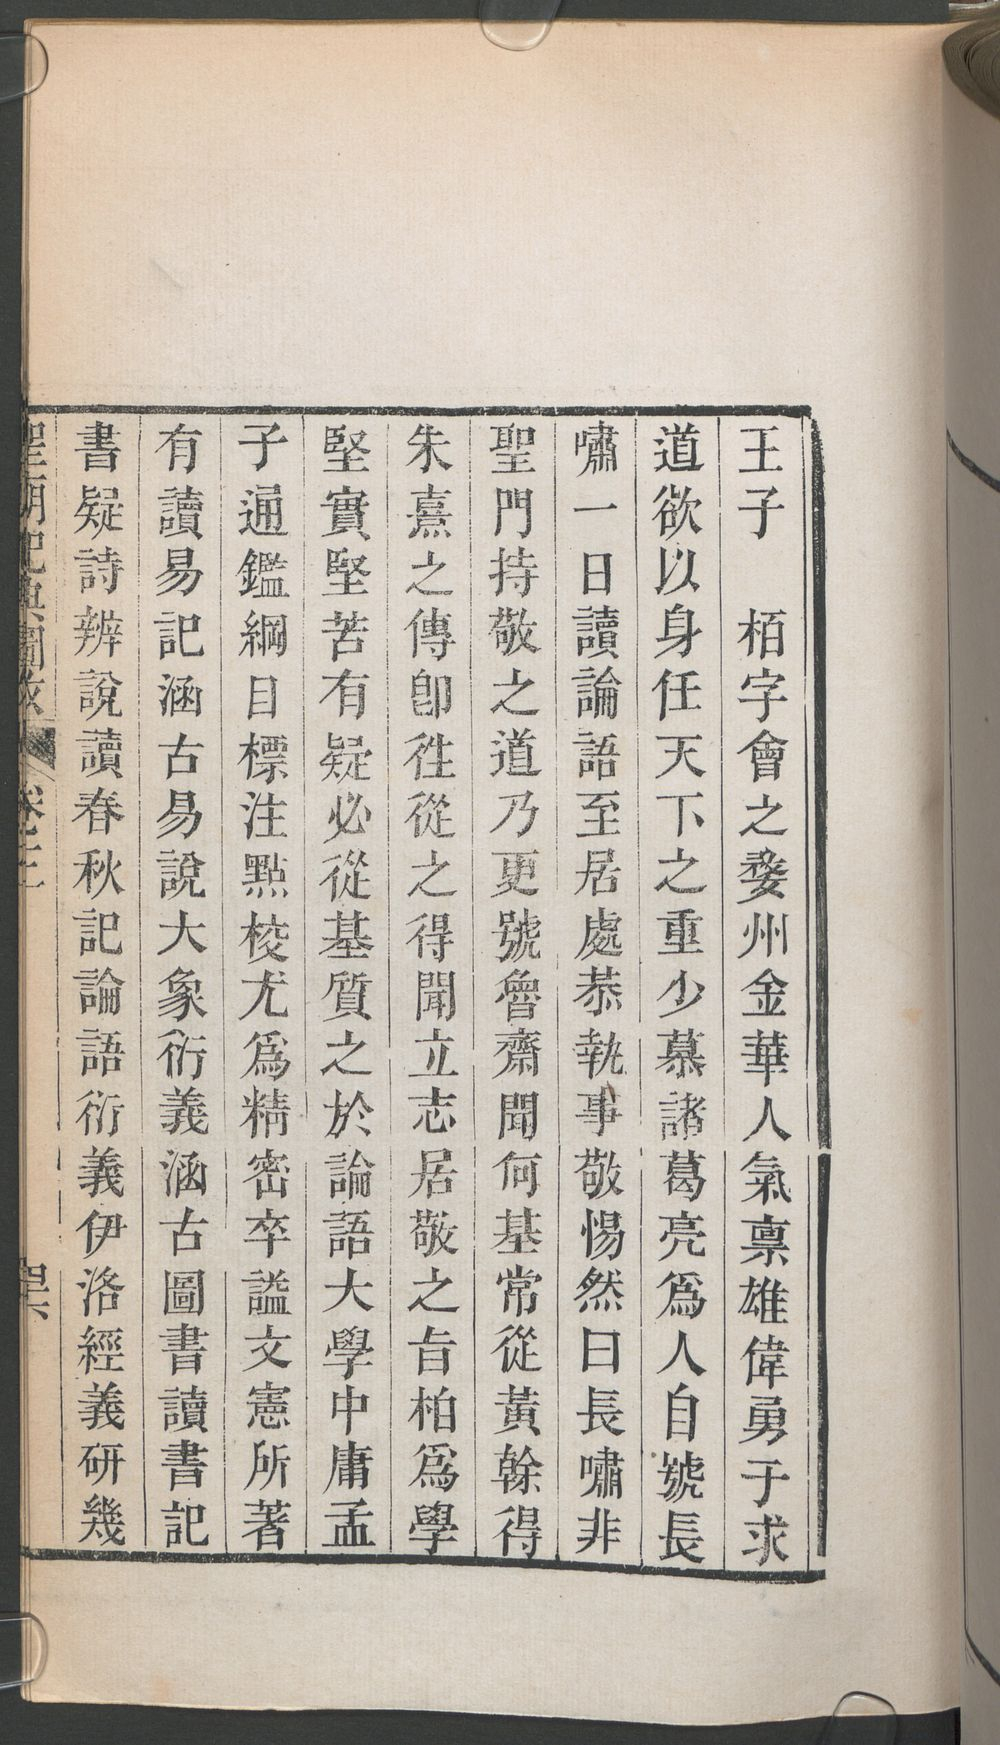 王子　栢字會之婺州金華人氣禀雄偉勇于求
道欲以身任天下之重少慕諸葛亮爲人自號長
嘯一日讀論語至居處恭執事敬惕然曰長嘯非
聖門持敬之道乃更號魯齋聞何基常從黃榦得
朱熹之傳卽徃從之得聞立志居敬之旨柏爲學
堅實堅苦有疑必從基質之於論語大學中庸孟
子通鑑綱目標注點校尤爲精密卒謚文憲所著
有讀易記涵古易說大象衍義涵古圖書讀書記
書疑詩辨說讀春秋記論語衍義伊洛經義研幾
聖朝祀典圖攷　卷之三　四六